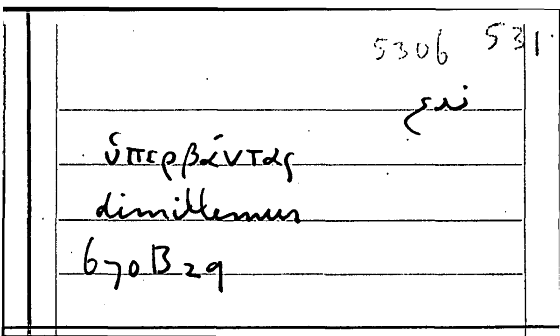 5306 531.
ὑπερβάντας
dimittemus
670B29